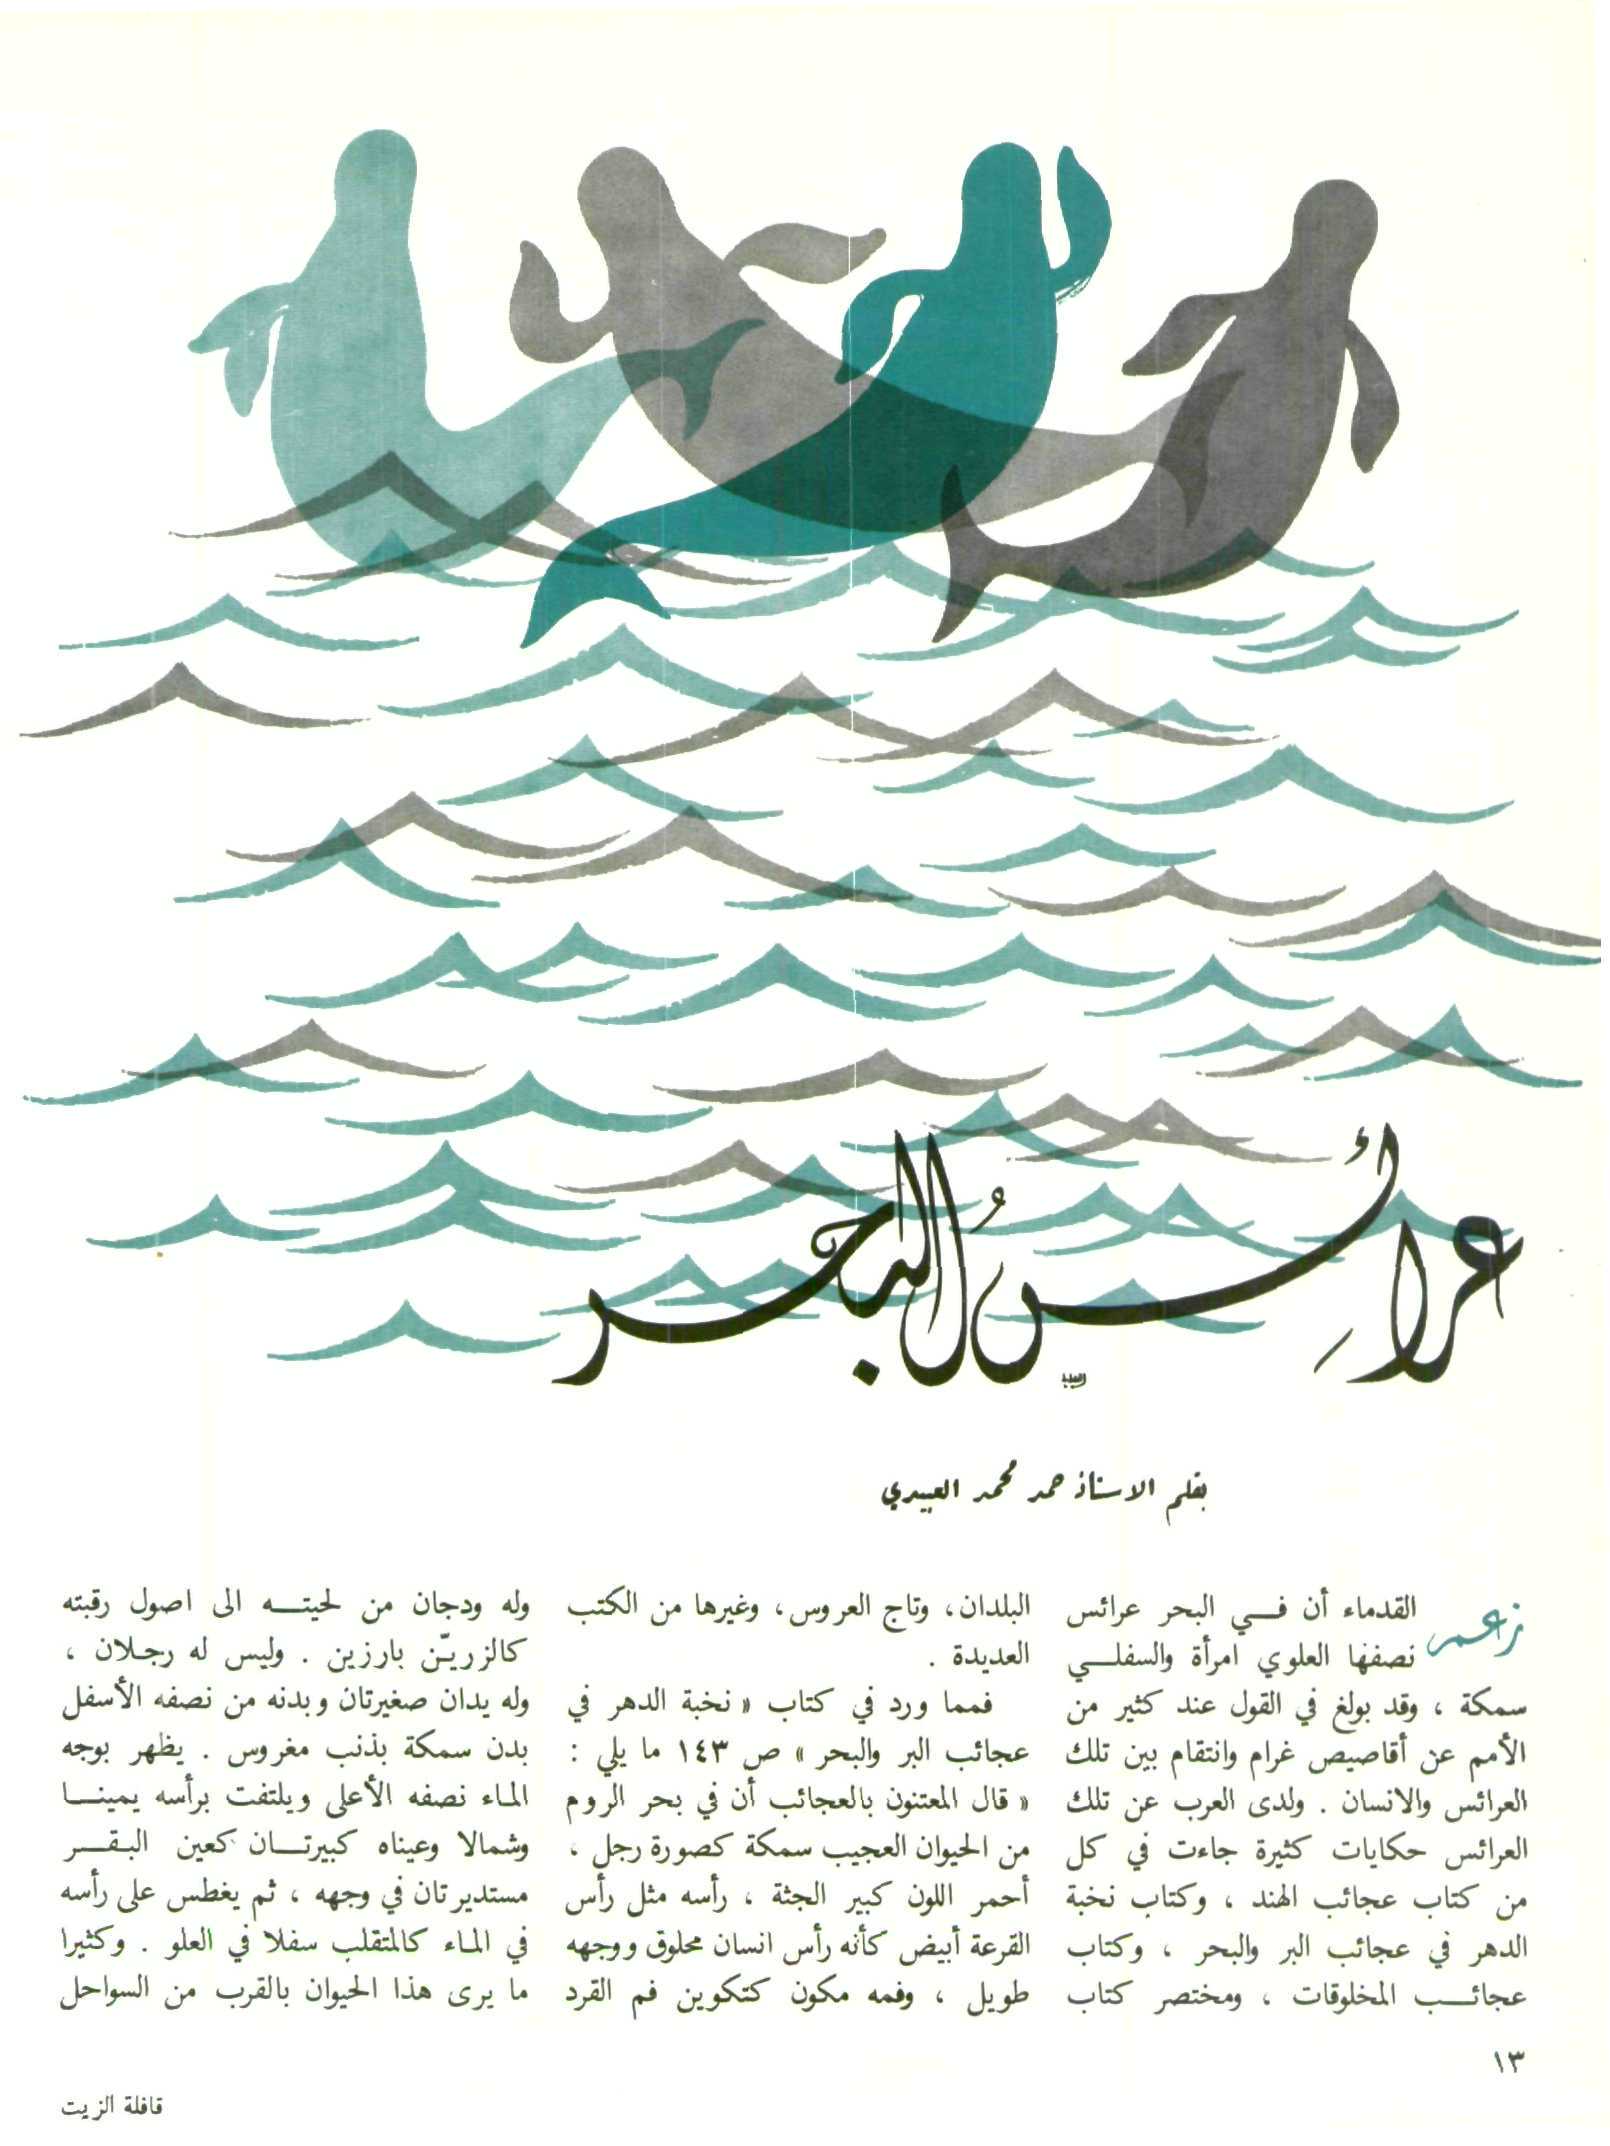 عرائسُ البحر
بقلم الاستاذ حمد محمد العبيدي
زعم القدماء أن في البحر عرائس
نصفها العلوي امرأة والسفلي
سمكة ، وقد بولغ في القول عند كثير من
الأمم عن أقاصيص غرام وانتقام بين تلك
العرائس والانسان . ولدى العرب عن تلك
العرائس حكايات كثيرة جاءت في كل
من كتاب عجائب الهند ، وكتاب نخبة
الدهر في عجائب البر والبحر ، وكتاب
عجائب المخلوقات ، ومختصر كتاب
البلدان، وتاج العروس، وغيرها من الكتب
العديدة .
فمما ورد في كتاب « نخبة الدهر في
عجائب البر والبحر » ص ١٤٣ ما يلي :
« قال المعتنون بالعجائب أن في بحر الروم
من الحيوان العجيب سمكة كصورة رجل ،
أحمر اللون كبير الجثة ، رأسه مثل رأس
القرعة أبيض كأنه رأس انسان محلوق ووجهه
طويل ، وفمه مكون كتكوين فم القرد
وله ودجان من لحيته الى اصول رقبته
كالزريّن بارزين . وليس له رجلان ،
وله يدان صغيرتان وبدنه من نصفه الأسفل
بدن سمكة بذنب مغروس . يظهر بوجه
الماء نصفه الأعلى ويلتفت برأسه يمينا
وشمالا وعيناه كبيرتان كعين البقر
مستديرتان في وجهه ، ثم يغطس على رأسه
في الماء كالمتقلب سفلا في العلو . وكثيرا
ما يرى هذا الحيوان بالقرب من السواحل
١٣
قافلة الزيت